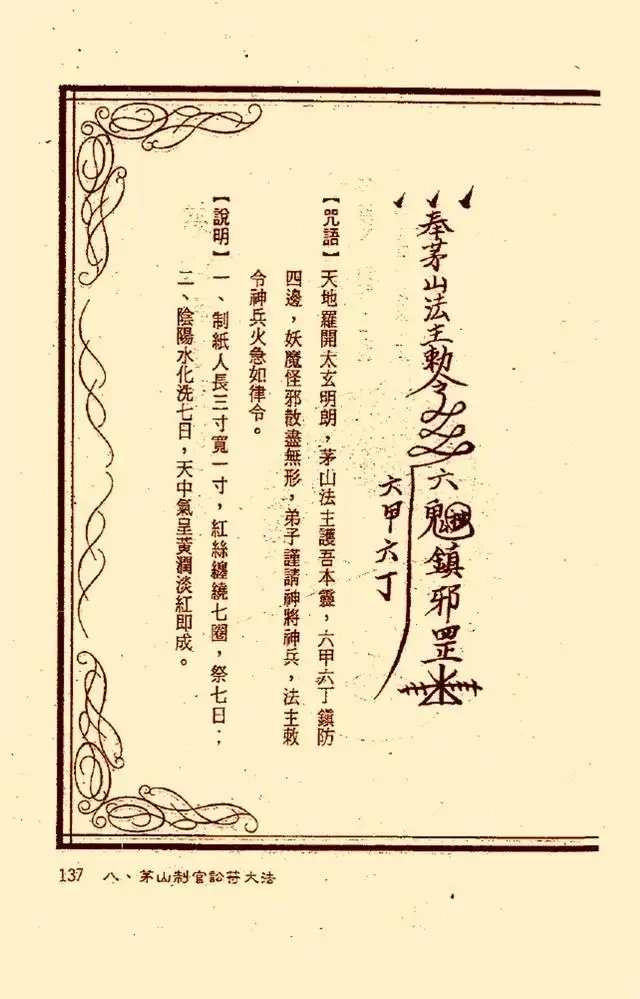 奉茅山法主勅令
六
鎮邪罡
六甲六丁
【咒語】天地羅開太玄明朗，茅山法主護吾本靈，六甲六丁鎮防
四邊，妖魔怪邪散盡無形，弟子謹請神將神兵，法主敕
令神兵火急如律令。
【說明】一、制紙人長三寸寬一寸，紅絲纏繞七圈，祭七日；
二、陰陽水化洗七日，天中氣呈黃潤淡紅即成。
137 八、茅山制官訟符大法